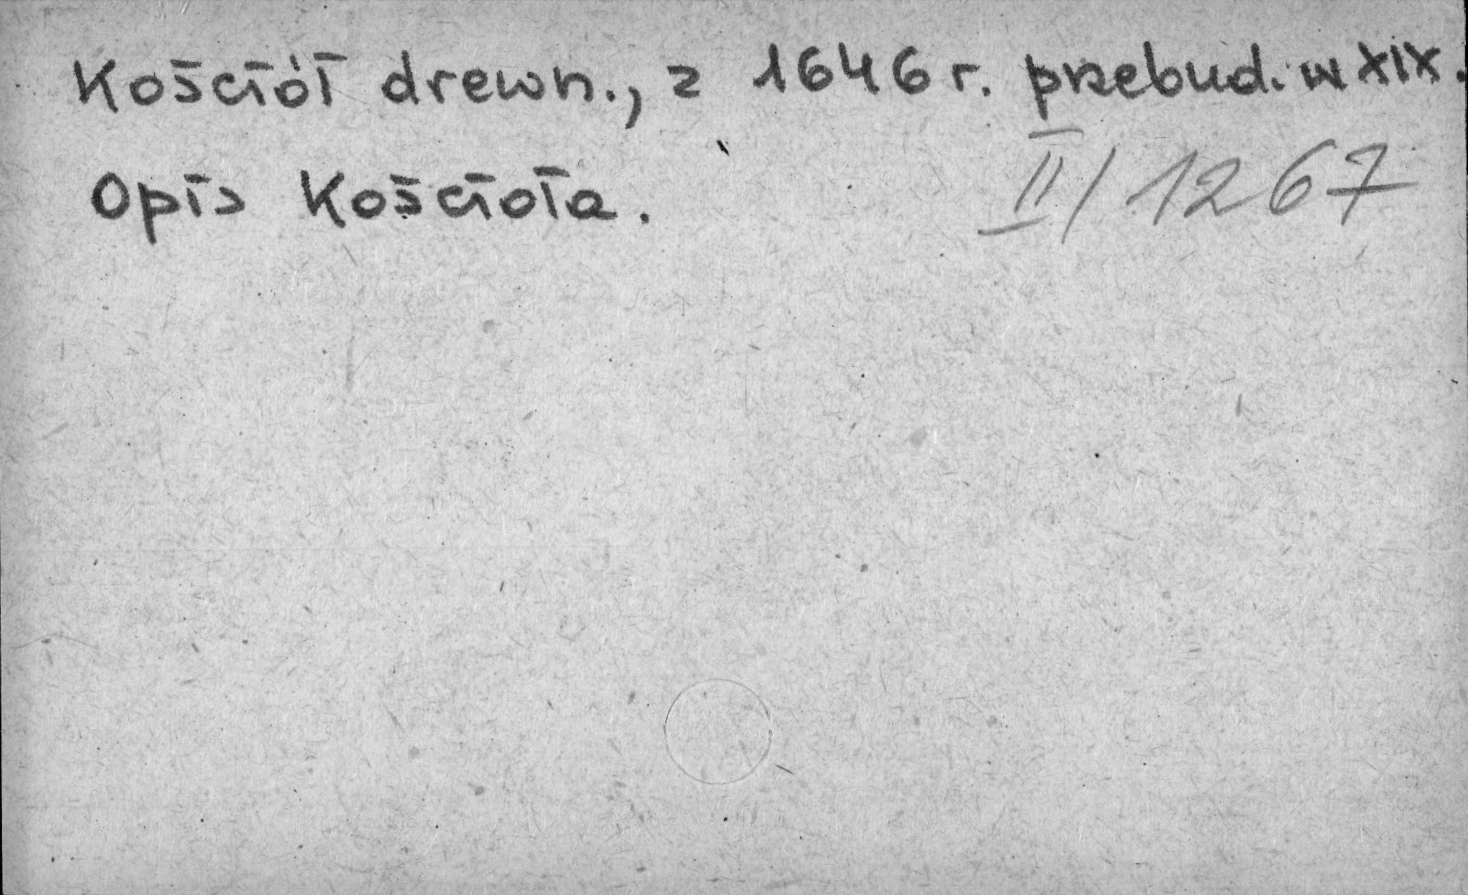 Kościół drewn., z 1646 r. przebud. w XIX.
Opis Kościoła.
II/1267